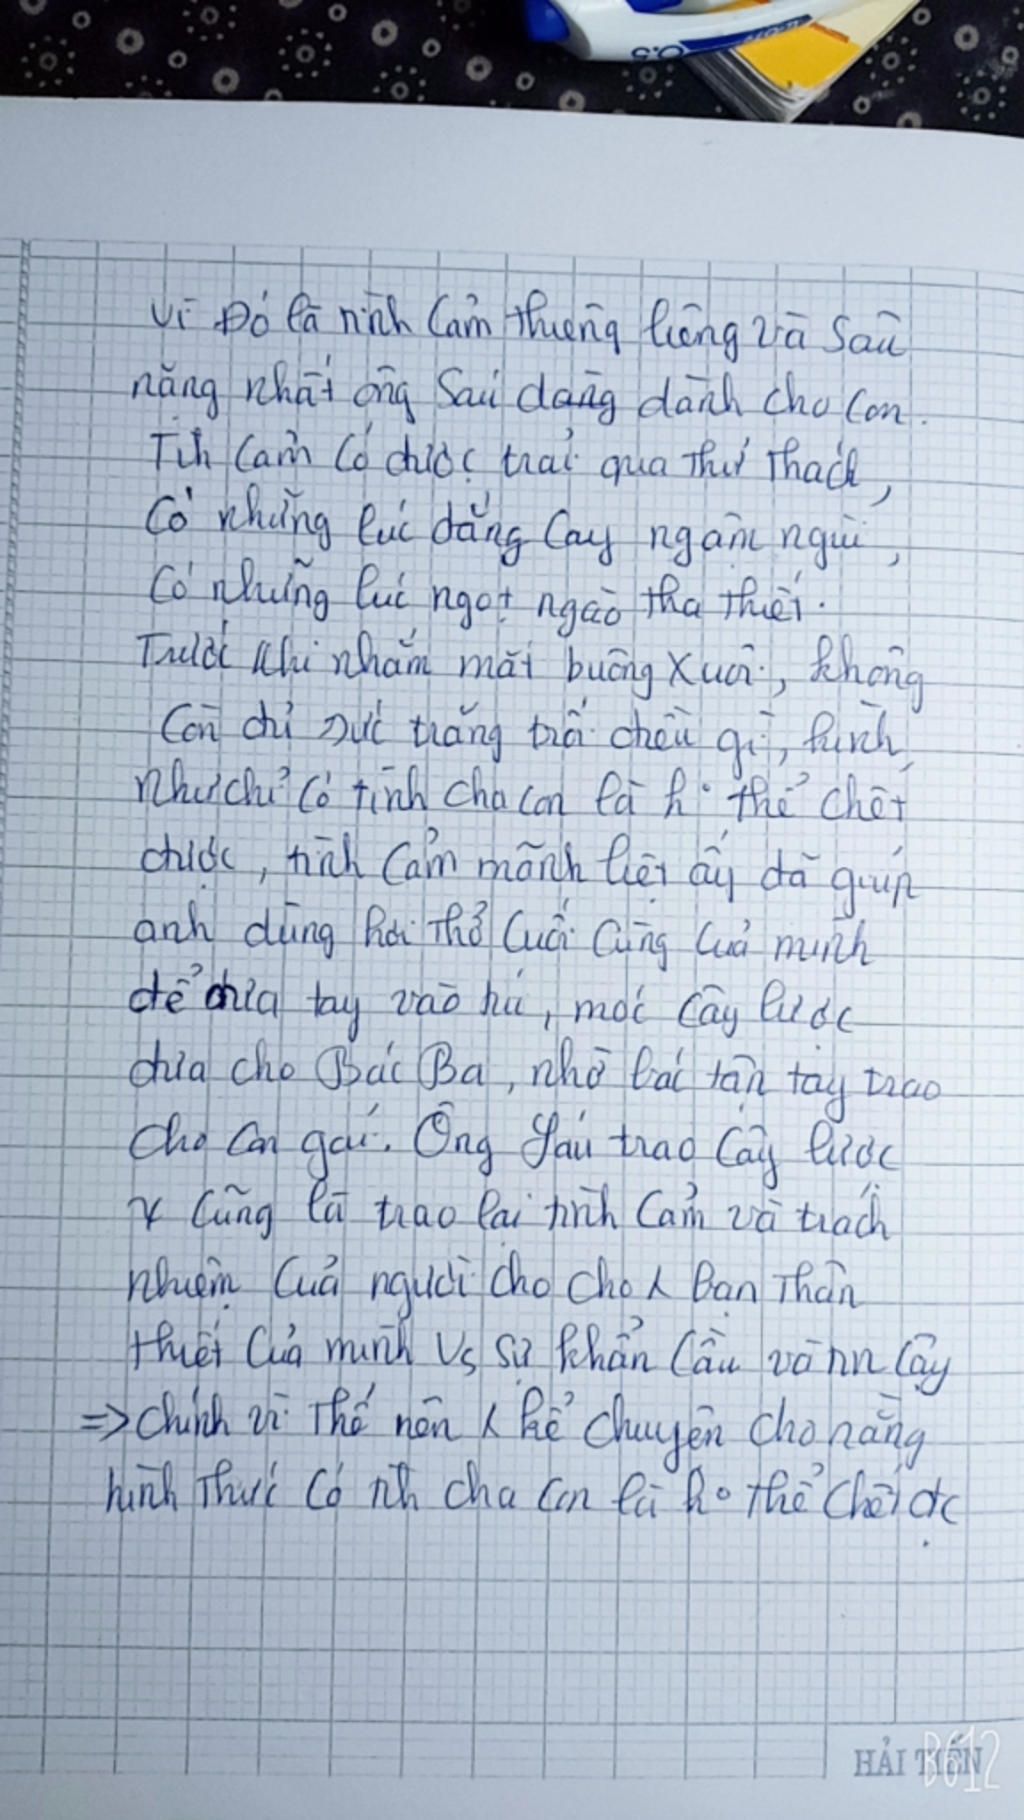 Vì Đó là tình cảm thương liêng và sâu
nặng nhất ông Sáu dang dành cho con.
Tình cảm có được trải qua thử thách,
Có những lúc đắng cay ngậm ngùi,
Có những lúc ngọt ngào tha thiết.
Trước khi nhắm mắt buông xuôi, không
Còn đủ sức trăng trối điều gì, hình
như chỉ có tình cha con là k° thể chết
được, tình cảm mãnh liệt ấy đã giúp
anh dùng hơi thở cuối cùng của mình
để đưa tay vào túi, móc cây lược
đưa cho Bác Ba, nhờ bác tận tay trao
cho con gái. Ông Sáu trao cây lược
cũng là trao lại tình cảm và trách
nhiệm của người cho cho Bạn Thân
thiết của mình Vs sự khẩn cầu và cậy
=> chính vì thế nên kể chuyện cho rằng
hình thức có th cha con là k° thể chết đc
HẢI TIẾN
B612
0.5